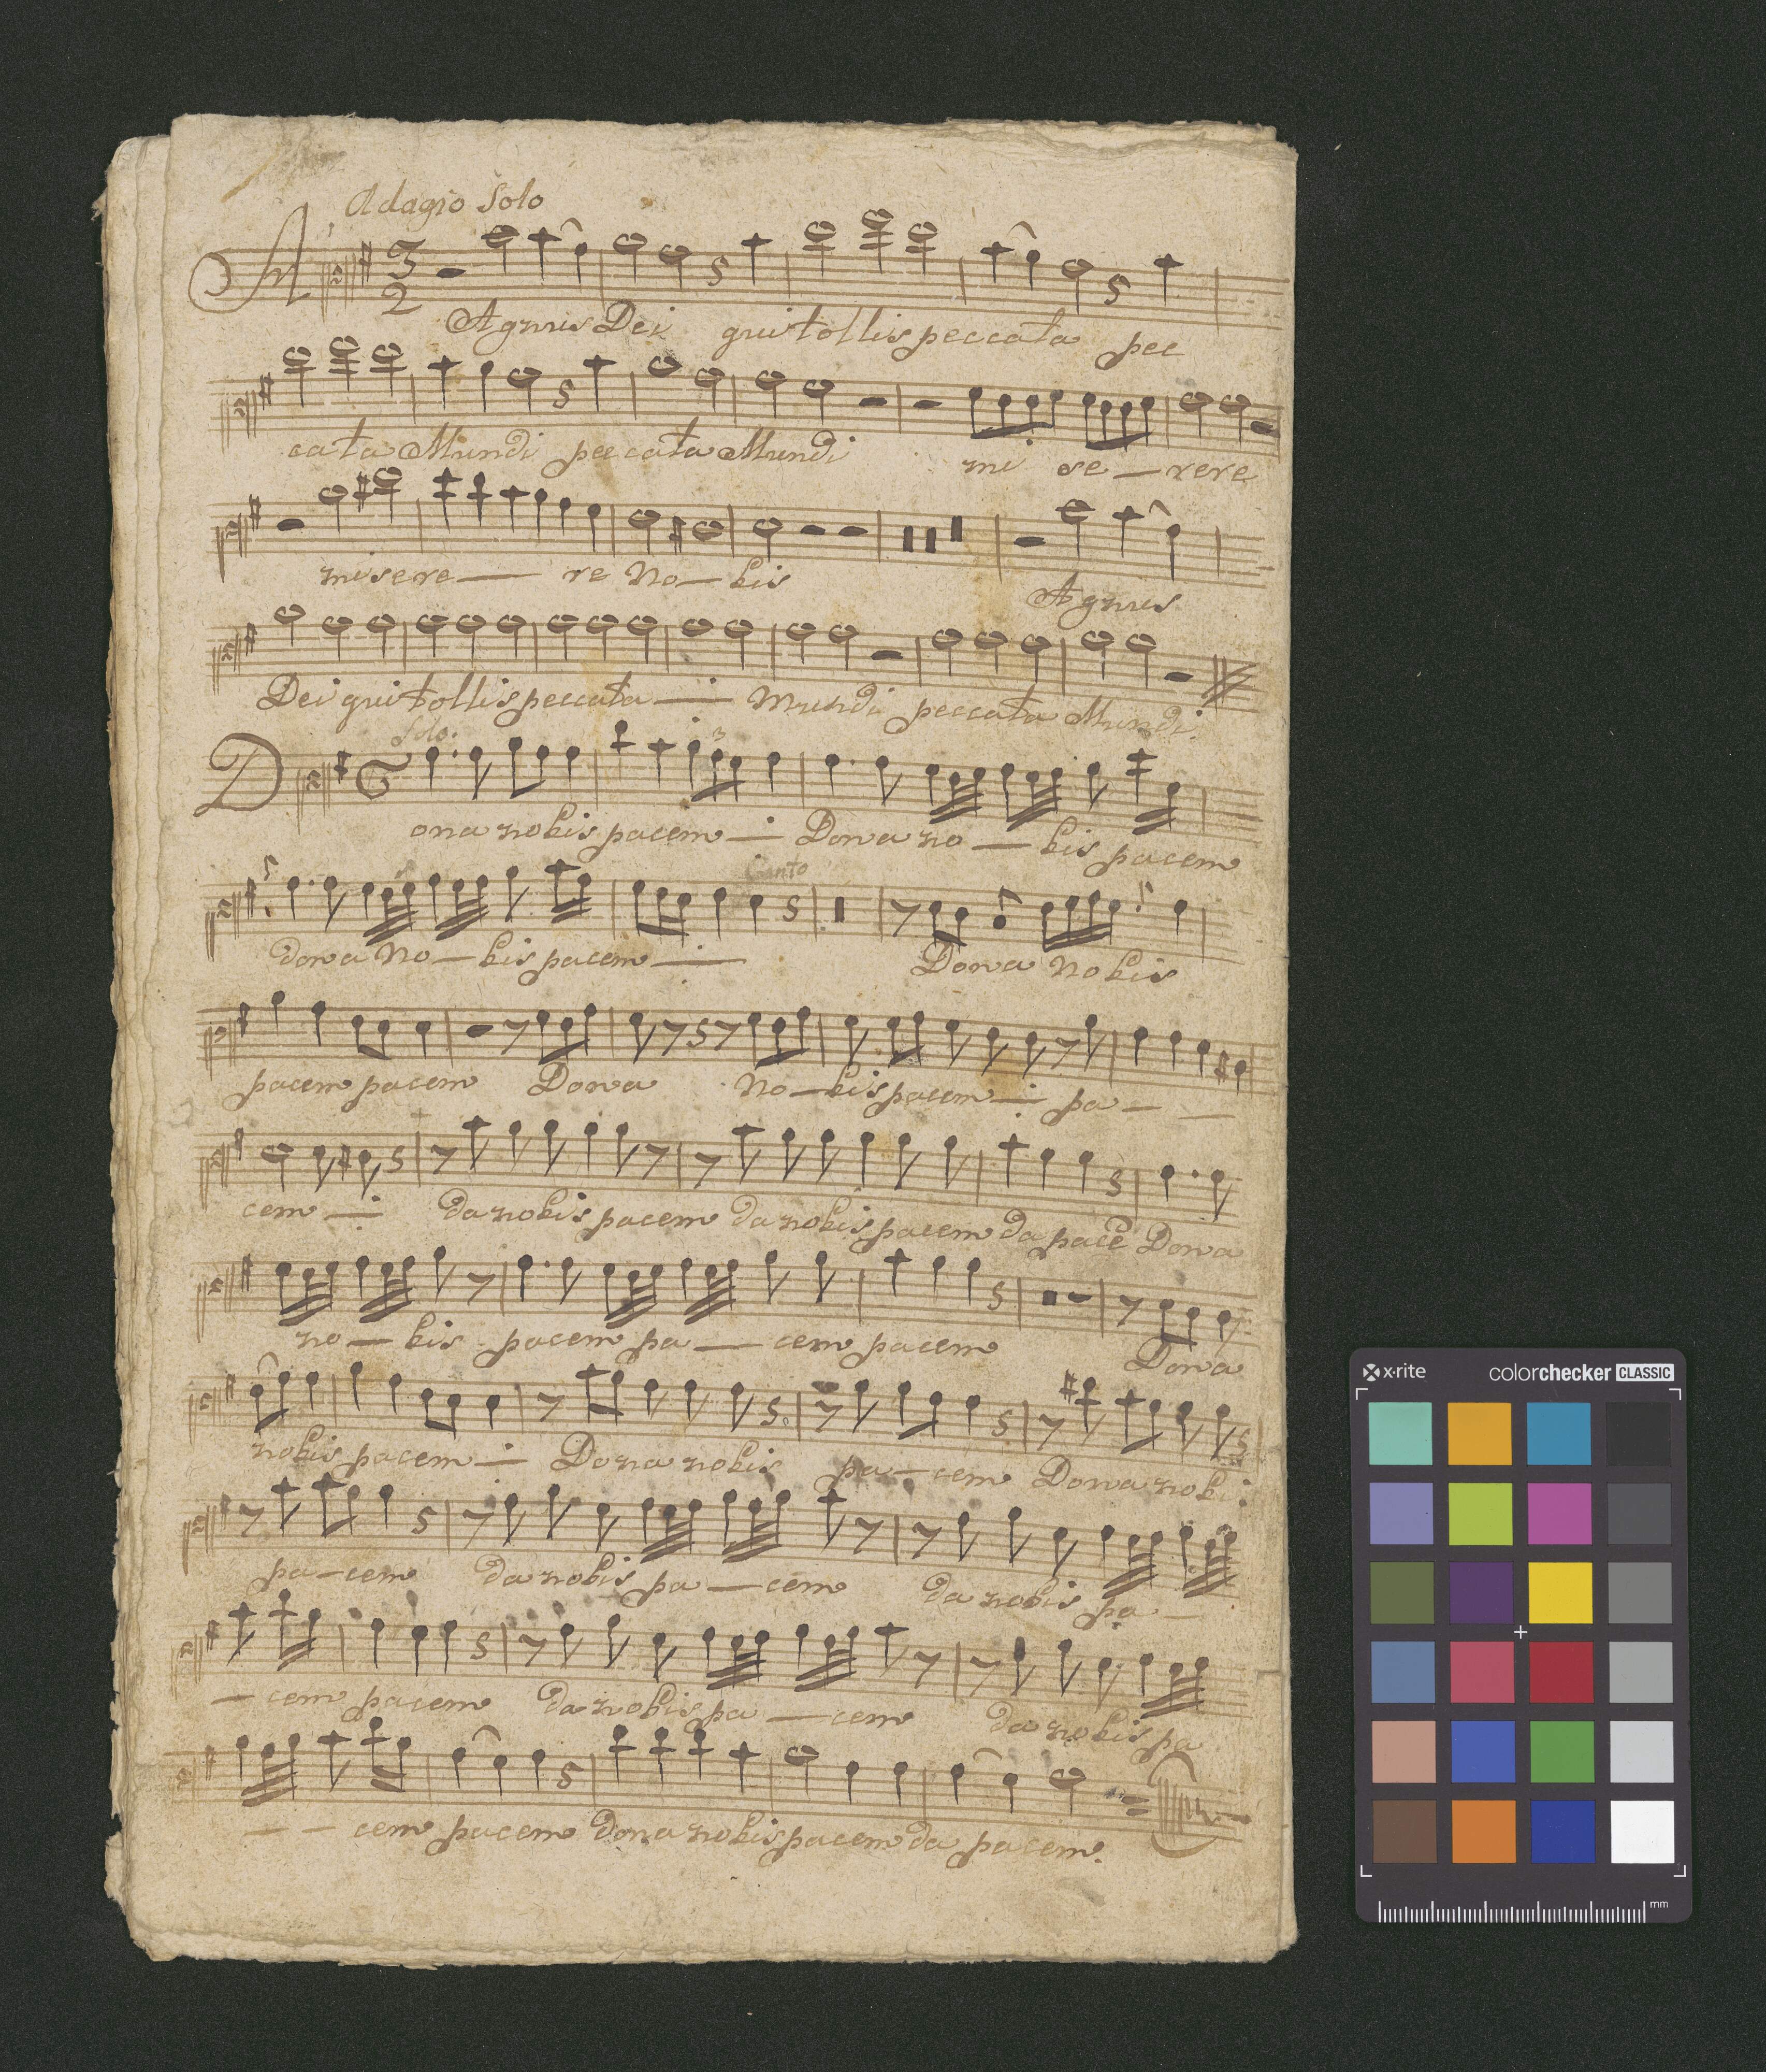 Adagio Solo
A
3
2
Agnus Dei qui tollis peccata pec
cata Mundi peccata Mundi mi se — rere
misere — re No — bis Agnus
Dei qui tollis peccata —
Mundi peccata Mundi.
Solo.
3
D
ona nobis pacem — Dona no — bis pacem
Canto
dona No — bis pacem — Dona Nobis
pacem pacem Dona No — bis pacem — pa —
cem — da nobis pacem da nobis pacem da pacē Dona
no — bis pacem pa — cem pacem Dona
nobis pacem — Dona nobis pa — cem Dona nobi
pa — cem da nobis pa — cem da nobis pa —
— cem pacem da nobis pa — cem da nobis pa
— — cem pacem dona nobis pacem da pacem.
x·rite colorchecker CLASSIC
mm